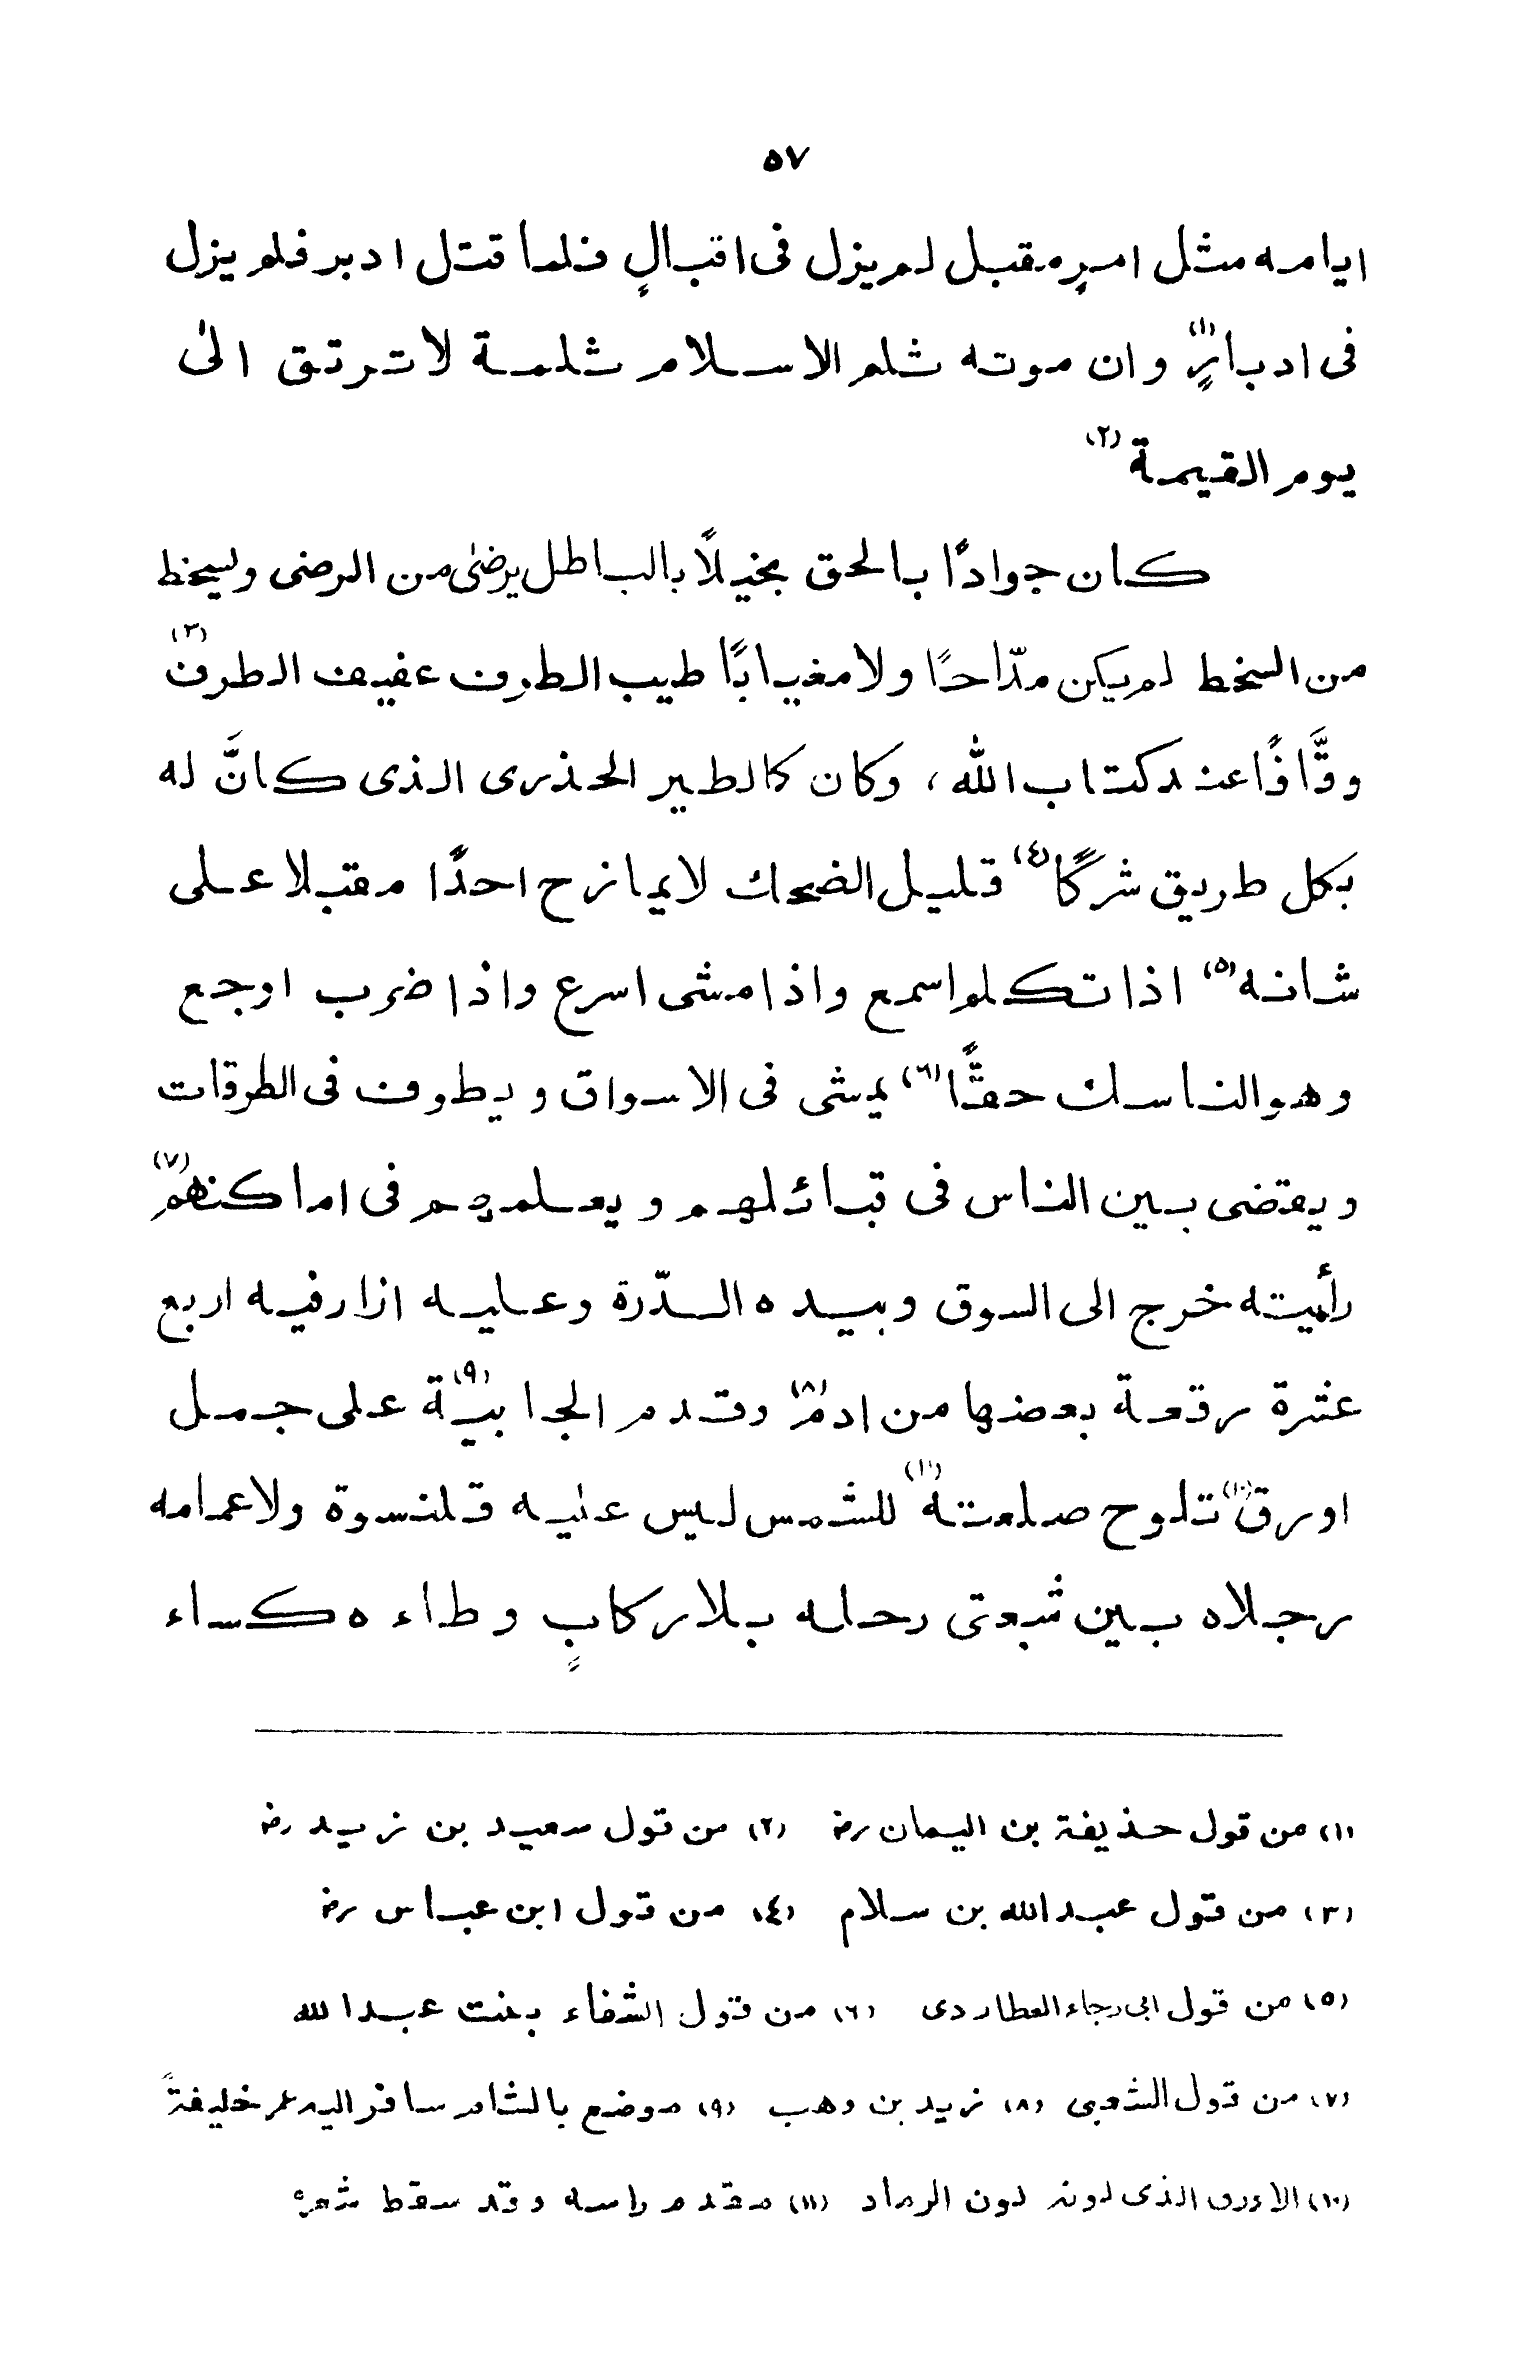 ٥٧
ايامه مثل امرٍ مقبل لم يزل فى اقبالٍ فلما قتل ادبر فلم يزل
فى ادبارٍ (١) وان موته ثلم الاسلام ثلمة لا ترتق الىٰ
يوم القيمة (٢)
كان جوادًا بالحق بخيلًا بالباطل يرضىٰ من الرضى ويسخط
من السخط لم يكن مدّاحًا ولا مغيابًا طيب الطرف عفيف الطرف (٣)
وقَّافًا عند كتاب الله، وكان كالطير الحذرى الذى كانَّ له
بكل طريق شركًا (٤) قليل الضحك لا يمازح احدًا مقبلا على
شانه (٥) اذا تكلم اسمع واذا مشى اسرع واذا ضرب اوجع
وهو الناسك حقًّا (٦) يمشى فى الاسواق ويطوف فى الطرقات
ويقضى بين الناس فى قبائلهم ويعلمهم فى اماكنهم (٧)
رأيته خرج الى السوق وبيده الدّرة وعليه ازار فيه اربع
عشرة رقعة بعضها من ادم (٨) وقدم الجابية (٩) على جمل
اورق (١٠) تلوح صلعته (١١) للشمس ليس عليه قلنسوة ولا عمامه
رجلاه بين شبعتى رحله بلا ركابٍ وطاءه كساء
(١) من قول حذيفة بن اليمان رض (٢) من قول سعيد بن زيد رض
(٣) من قول عبد الله بن سلام (٤) من قول ابن عباس رض
(٥) من قول ابى رجاء العطاردى (٦) من قول الشفاء بنت عبد الله
(٧) من قول الشعبى (٨) زيد بن وهب (٩) موضع بالشام سافر اليه عمر خليفةً
(١٠) الاورق الذى لونه لون الرماد (١١) مقدم راسه وقد سقط شعره